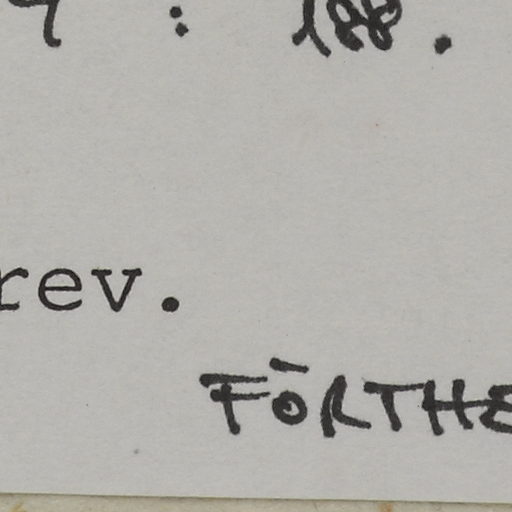 : 188.
rev.
FŌRTHE